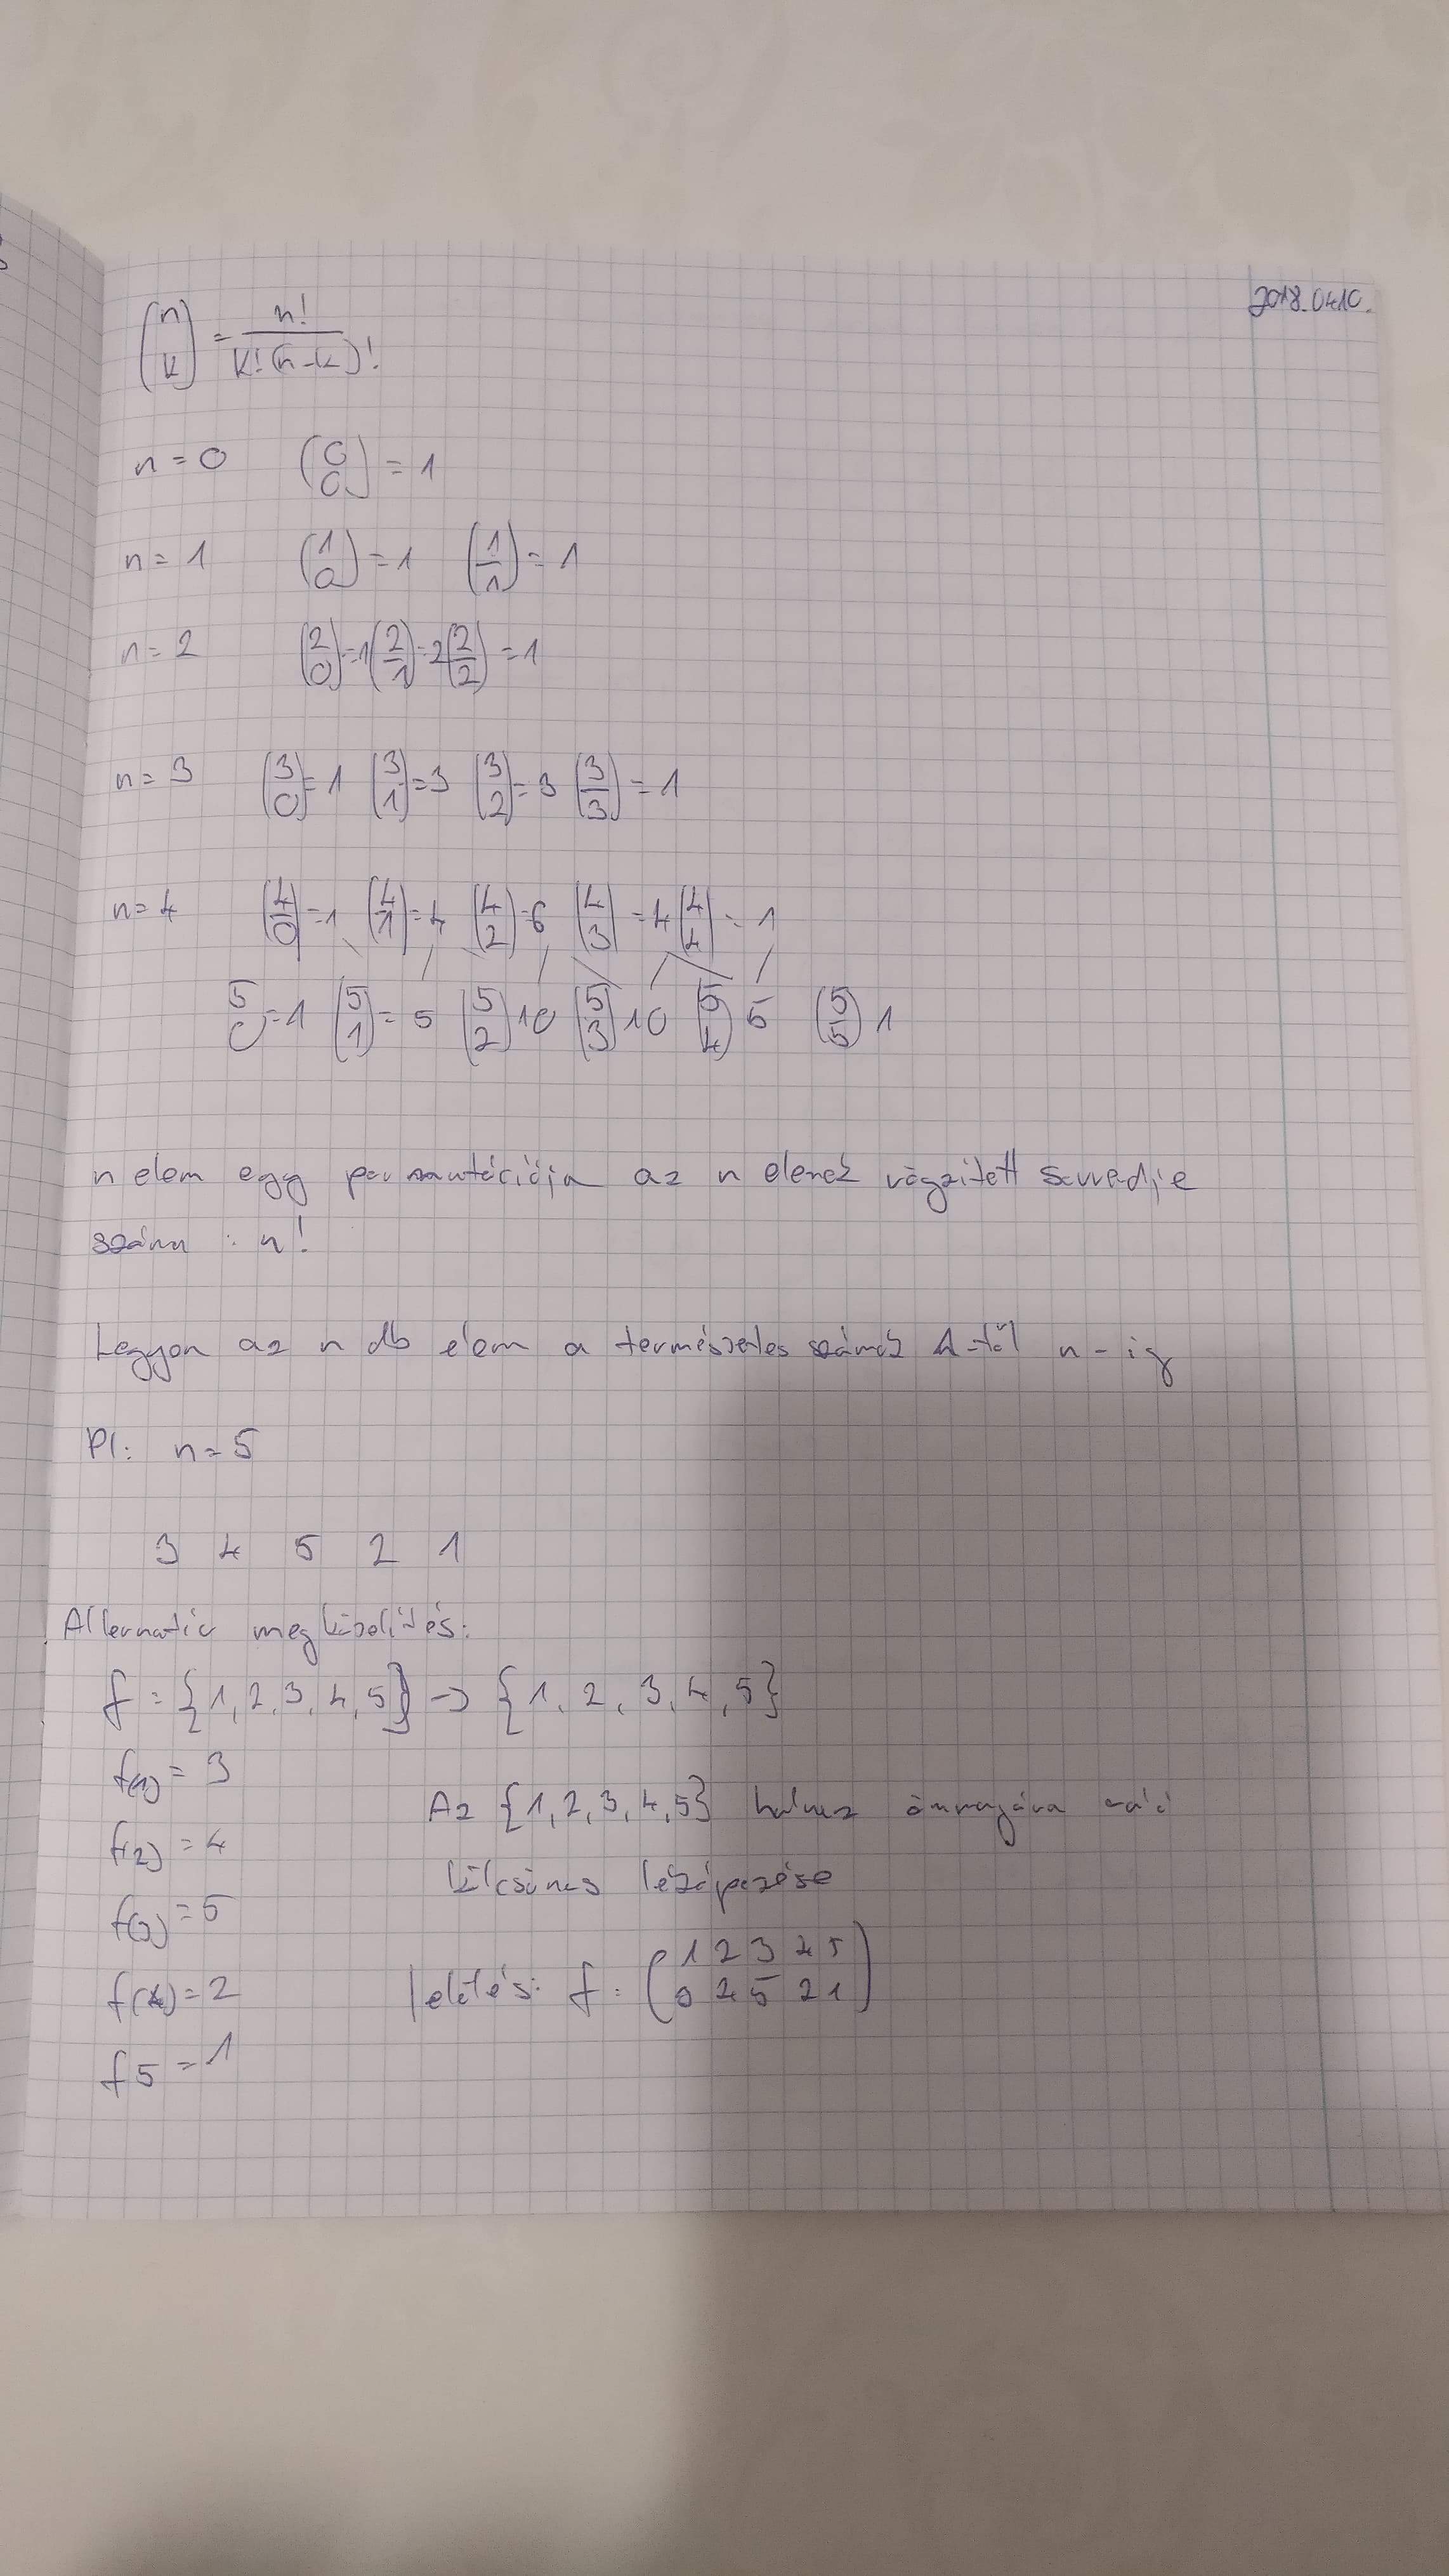 2018.04.10.
(n k) = n! / k!(n-k)!
n = 0 (0 0) = 1
n = 1 (1 0) = 1 (1 1) = 1
n = 2 (2 0) = 1 (2 1) = 2 (2 2) = 1
n = 3 (3 0) = 1 (3 1) = 3 (3 2) = 3 (3 3) = 1
n = 4 (4 0) = 1 (4 1) = 4 (4 2) = 6 (4 3) = 4 (4 4) = 1
5 0 = 1 (5 1) = 5 (5 2) 10 (5 3) 10 (5 4) 5 (5 5) 1
n elem egy permutációja az n elemek rögzített sorrendje
száma : n!
Legyen az n db elem a természetes számok 1-től n-ig
Pl: n = 5
3 4 5 2 1
Alternatív megközelítés:
f = {1, 2, 3, 4, 5} -> {1, 2, 3, 4, 5}
f(1) = 3
Az {1, 2, 3, 4, 5} halmaz önmagára való
f(2) = 4
kölcsönös leképezése
f(3) = 5
f(4) = 2
Jelölés: f: (1 2 3 4 5
3 4 5 2 1)
f5 = 1